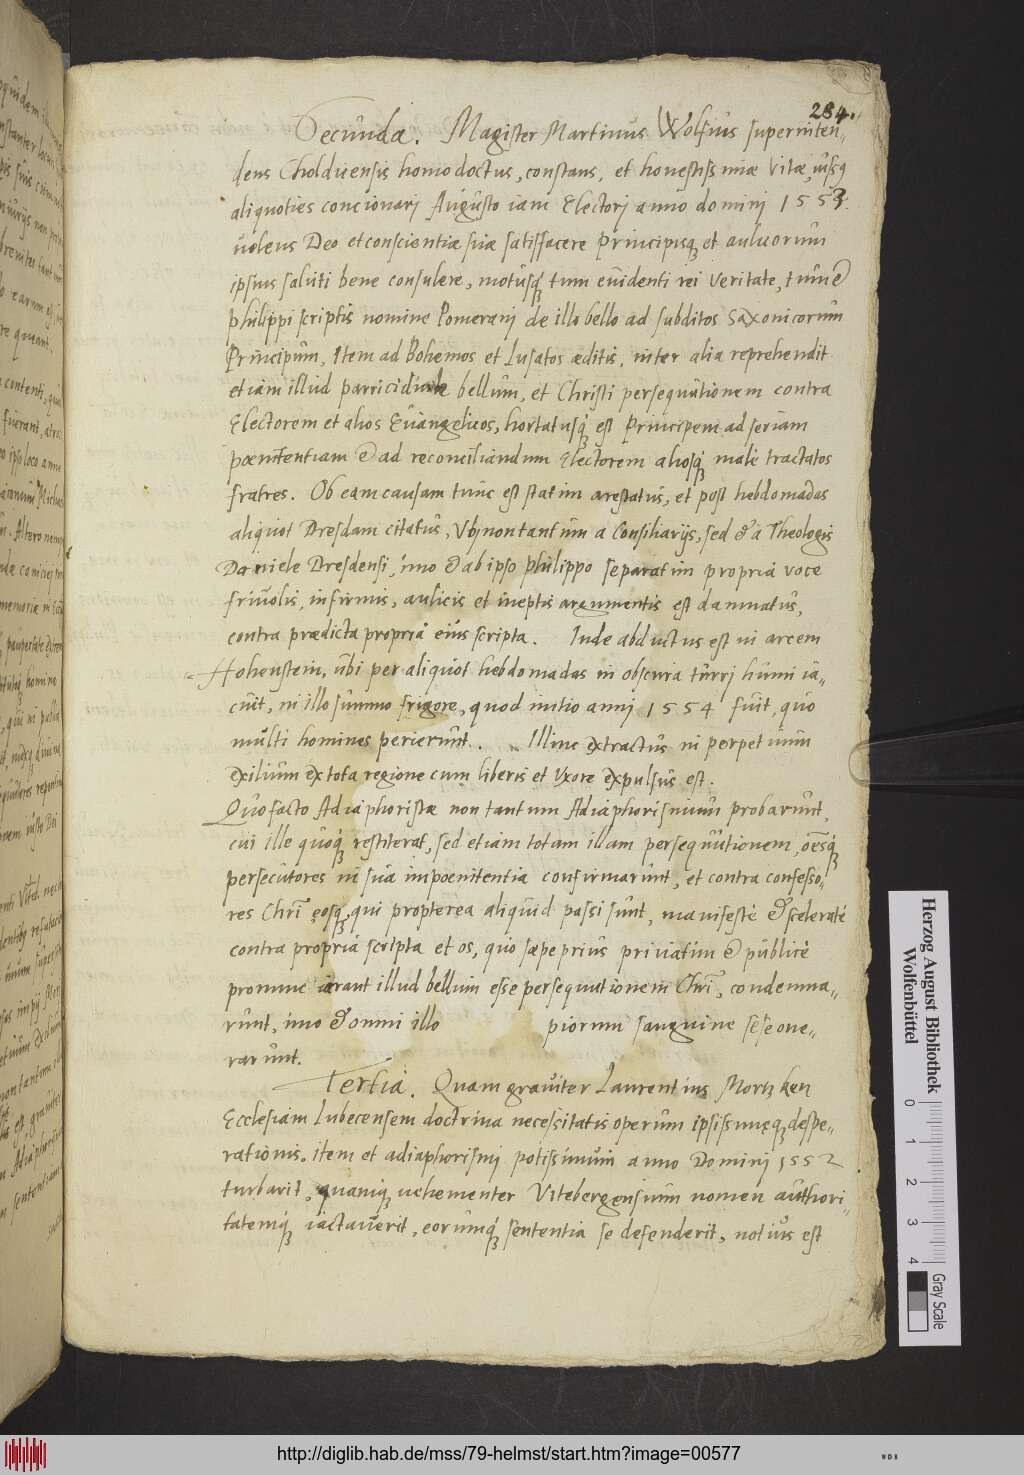 284.
Secunda. Magister Martinus Wolfius superinten-
dens Choldicensis homo doctus, constans, et honestissimae vitae, usq
aliquoties concionarj Augusto iam Electorj anno dominj 1553.
volens Deo et conscientiae suae satisfacere Principisq et aulicorum
ipsius saluti bene consulere, motusq tum evidenti rei veritate, tum è
philippi scriptis nomine Pomeranj de illo bello ad subditos Saxonicorum
Principum, Item ad Bohemos et Lusatos aeditis, inter alia reprehendit
etiam illud parricidiale bellum, et Christi persequutionem contra
Electorem et alios Evangelicos, hortatusq est Principem ad seriam
poenitentiam & ad reconciliandum Electorem aliosq male tractatos
fratres. Ob eam causam tunc est statim arestatus, et post hebdomadas
aliquot Dresdam citatus, Ubj non tantum a Consiliarijs, sed & a Theologis
Daniele Dresdensi, imo & ab ipso philippo separatim propria voce
frivolis, infirmis, aulicis et ineptis argumentis est damnatus,
contra praedicta propria eius scripta. Inde abductus est in arcem
Hohenstein, ubi per aliquot hebdomadas in obscura turrj humi ia-
cuit, in illo summo frigore, quod initio annj 1554 fuit, quo
multi homines perierunt. Illinc extractus in perpetuum
exilium ex tota regione cum liberis et Uxore expulsus est.
Quo facto Adiaphoristae non tantum Adiaphorismum probarunt,
cui ille quoq restiterat, sed etiam totam illam persequutionem, oesq
persecutores in sua impoenitentia confirmarunt, et contra confesso-
res Chrj eosq, qui propterea aliquid passi sunt, manifestè & sceleratè
contra propria scripta et os, quo saepe prius privatim & publicè
pronunciarant illud bellum esse persequutionem Chrj, condemna-
runt, imo & omni illo piorum sanguine sese one-
rarunt.
Tertia. Quam graviter Laurentius Mortzken
Ecclesiam Lubecensem doctrina necessitatis operum ipsissimęq despe-
rationis, item et adiaphorismj potissimum anno Dominj 1552
turbarit, quamq vehementer Vitebergensium nomen authori-
tatemq iactaverit, eorumq sententia se defenderit, notius est
Herzog August Bibliothek
Wolfenbüttel
0 1 2 3 4
Gray Scale
http://diglib.hab.de/mss/79-helmst/start.htm?image=00577